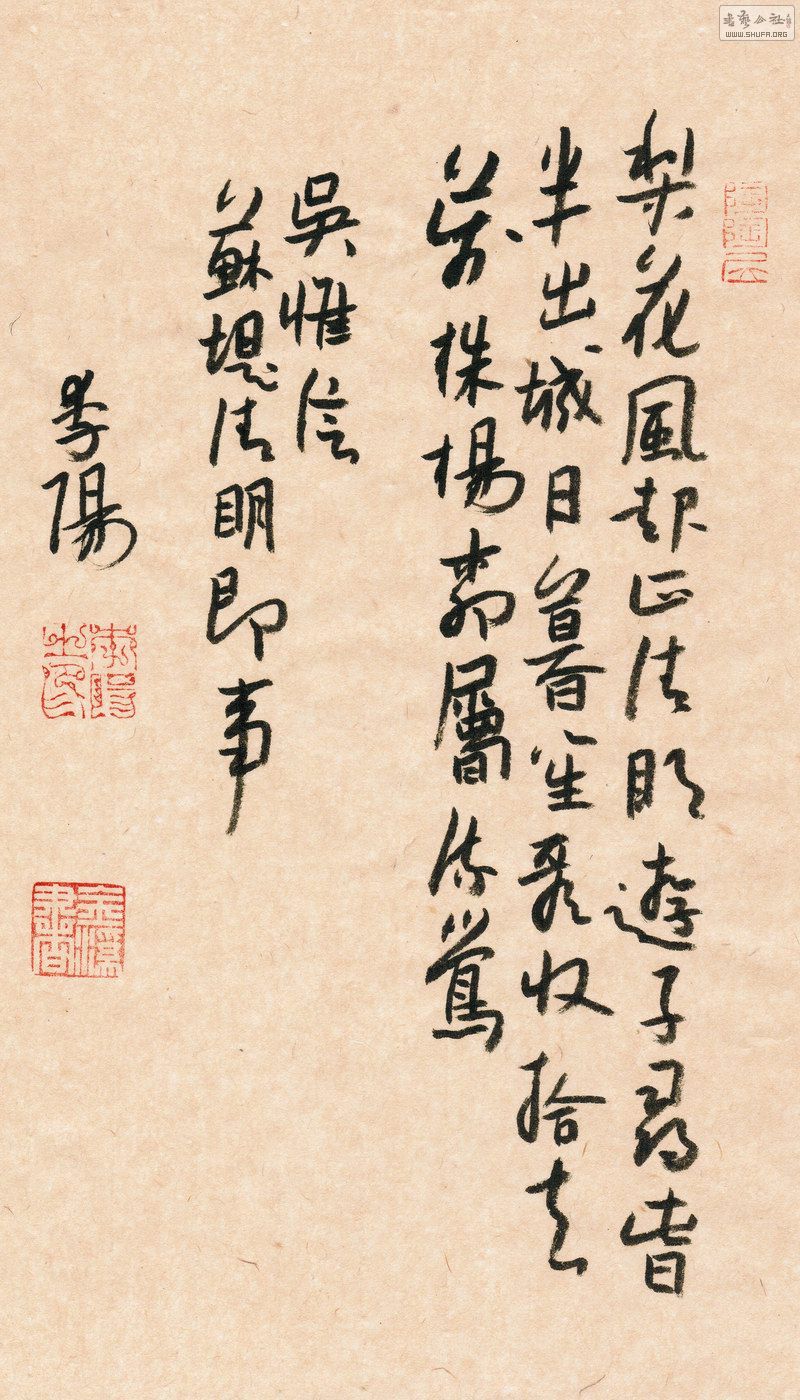 梨花風起正清明遊子尋旾
半出城日暮笙歌收拾去
萬株楊柳屬流鶯
吳惟信
蘇堤清明即事
陽
WWW.SHUFA.ORG